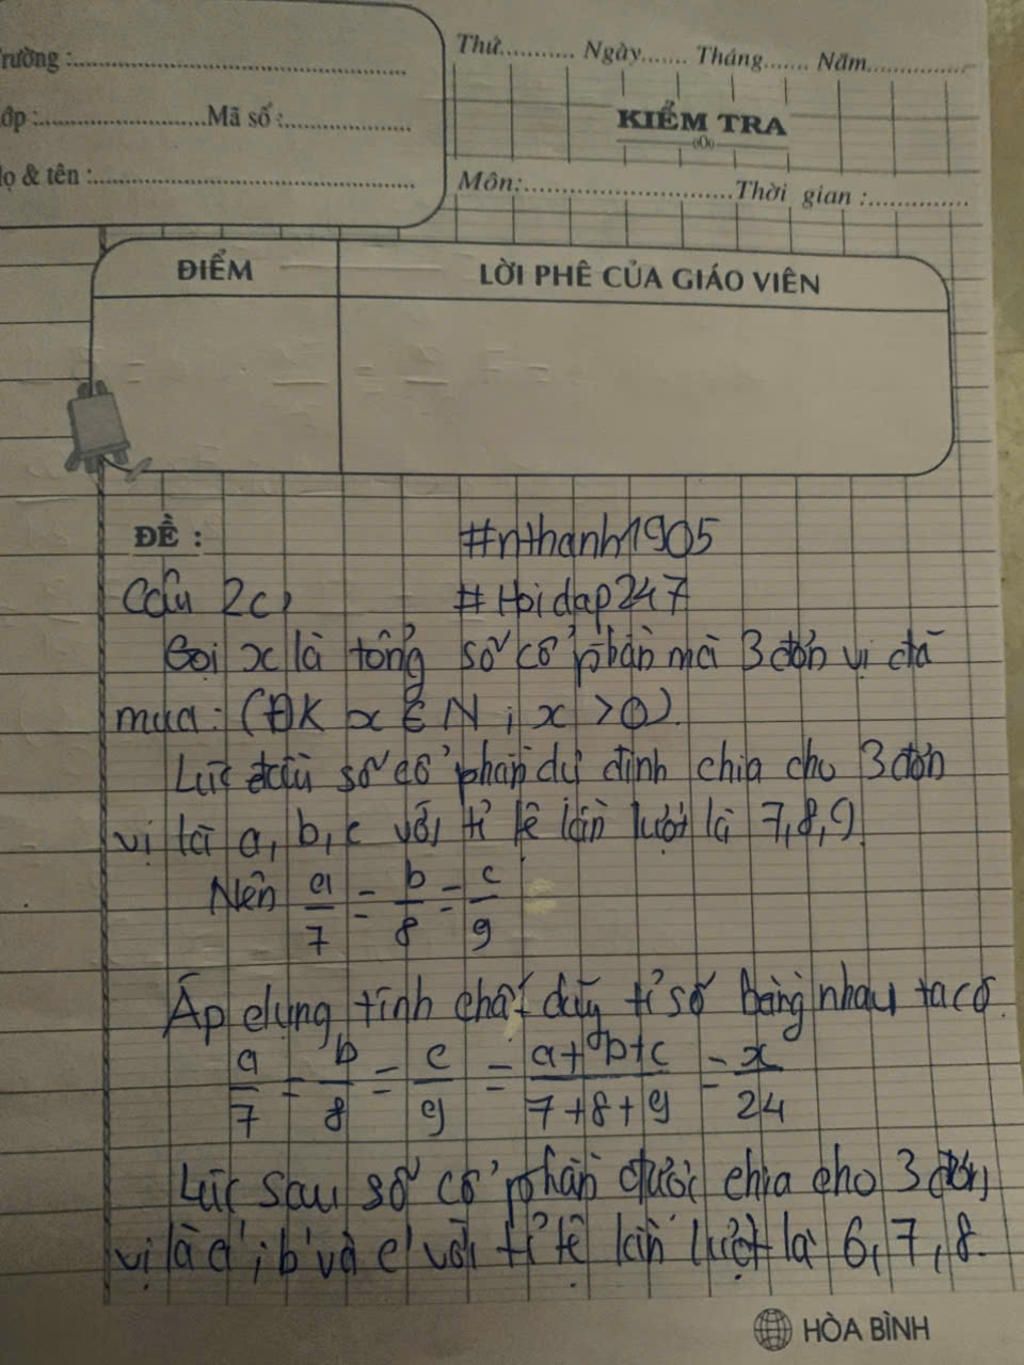 Trường :
Lớp : Mã số :
Họ & tên :
Thứ Ngày Tháng Năm
KIỂM TRA
Môn: Thời gian :
ĐIỂM LỜI PHÊ CỦA GIÁO VIÊN
ĐỀ : #nthanh1905
Câu 2c) #Hoidap247
Gọi x là tổng số cổ phần mà 3 đơn vị đã
mua: (ĐK x ∈ N ; x > 0).
Lúc đầu số cổ phần dự định chia cho 3 đơn
vị là a, b, c với tỉ lệ lần lượt là 7, 8, 9
Nên a/7 = b/8 = c/9
Áp dụng tính chất dãy tỉ số bằng nhau ta có
a/7 = b/8 = c/9 = a+b+c/7+8+9 = x/24
Lúc sau số cổ phần được chia cho 3 đơn
vị là a' ; b' và c' với tỉ lệ lần lượt là 6, 7, 8.
HÒA BÌNH